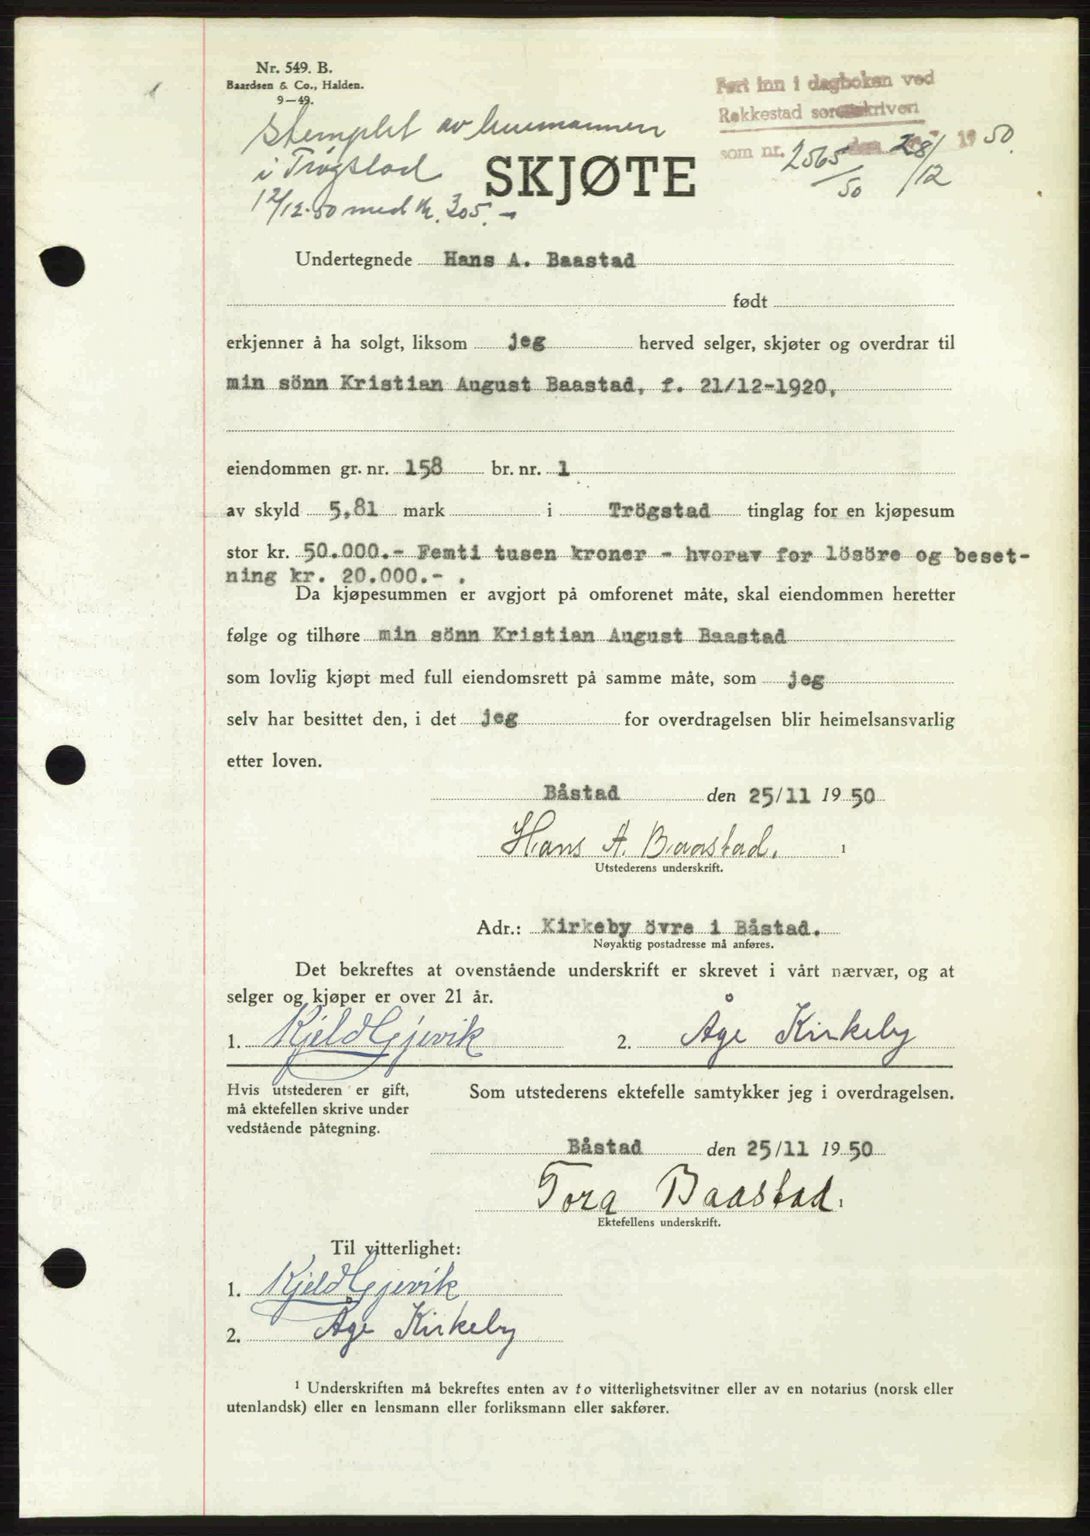 Nr. 549. B.
Baardsen & Co., Halden.
9—49.
Ført inn i dagboken ved
Rakkestad sorenskriveri
som nr. 2565/50 den 28/12 1950.
Stemplet av lensmannen
i Trøgstad
12/12-50 med kr. 305.-
SKJØTE
Undertegnede Hans A. Baastad
født
erkjenner å ha solgt, liksom jeg herved selger, skjøter og overdrar til
min sönn Kristian August Baastad, f. 21/12-1920,
eiendommen gr. nr. 158 br. nr. 1
av skyld 5,81 mark i Trögstad tinglag for en kjøpesum
stor kr. 50.000.- Femti tusen kroner - hvorav for lösöre og beset-
ning kr. 20.000.- .
Da kjøpesummen er avgjort på omforenet måte, skal eiendommen heretter
følge og tilhøre min sönn Kristian August Baastad
som lovlig kjøpt med full eiendomsrett på samme måte, som jeg
selv har besittet den, i det jeg for overdragelsen blir heimelsansvarlig
etter loven.
Båstad den 25/11 1950
Hans A. Baastad. 1
Utstederens underskrift.
Adr.: Kirkeby övre i Båstad.
Nøyaktig postadresse må anføres.
Det bekreftes at ovenstående underskrift er skrevet i vårt nærvær, og at
selger og kjøper er over 21 år.
1. Kjeld Gjevik 2. Åge Kirkeby
Hvis utstederen er gift,
må ektefellen skrive under
vedstående påtegning.
Som utstederens ektefelle samtykker jeg i overdragelsen.
Båstad den 25/11 1950
Tora Baastad 1
Ektefellens underskrift.
Til vitterlighet:
1. Kjeld Gjevik
2. Åge Kirkeby
1 Underskriften må bekreftes enten av to vitterlighetsvitner eller av en notarius (norsk eller
utenlandsk) eller en lensmann eller forliksmann eller sakfører.